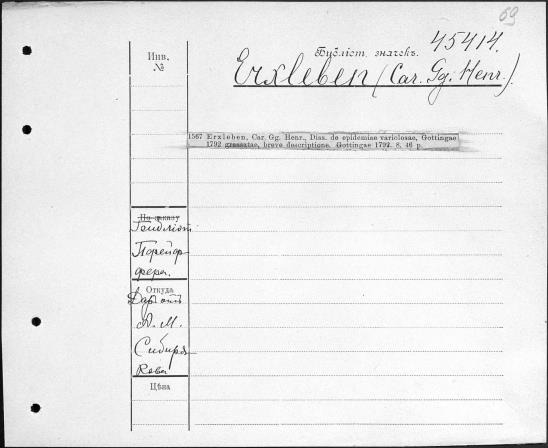 69
Инв.
№
Библіот. значокъ. 45414.
Erxleben (Car. Gg. Henr.).
1567 Erxleben, Car. Gg. Henr., Diss. de epidemiae variolosae, Gottingae
1792 grassatae, brevi descriptione. Gottingae 1792. 8. 46 p.
По заказу
Гейдфер-
фера.
Откуда
Даръ отъ
А. М.
Сибиря-
кова
Цѣна